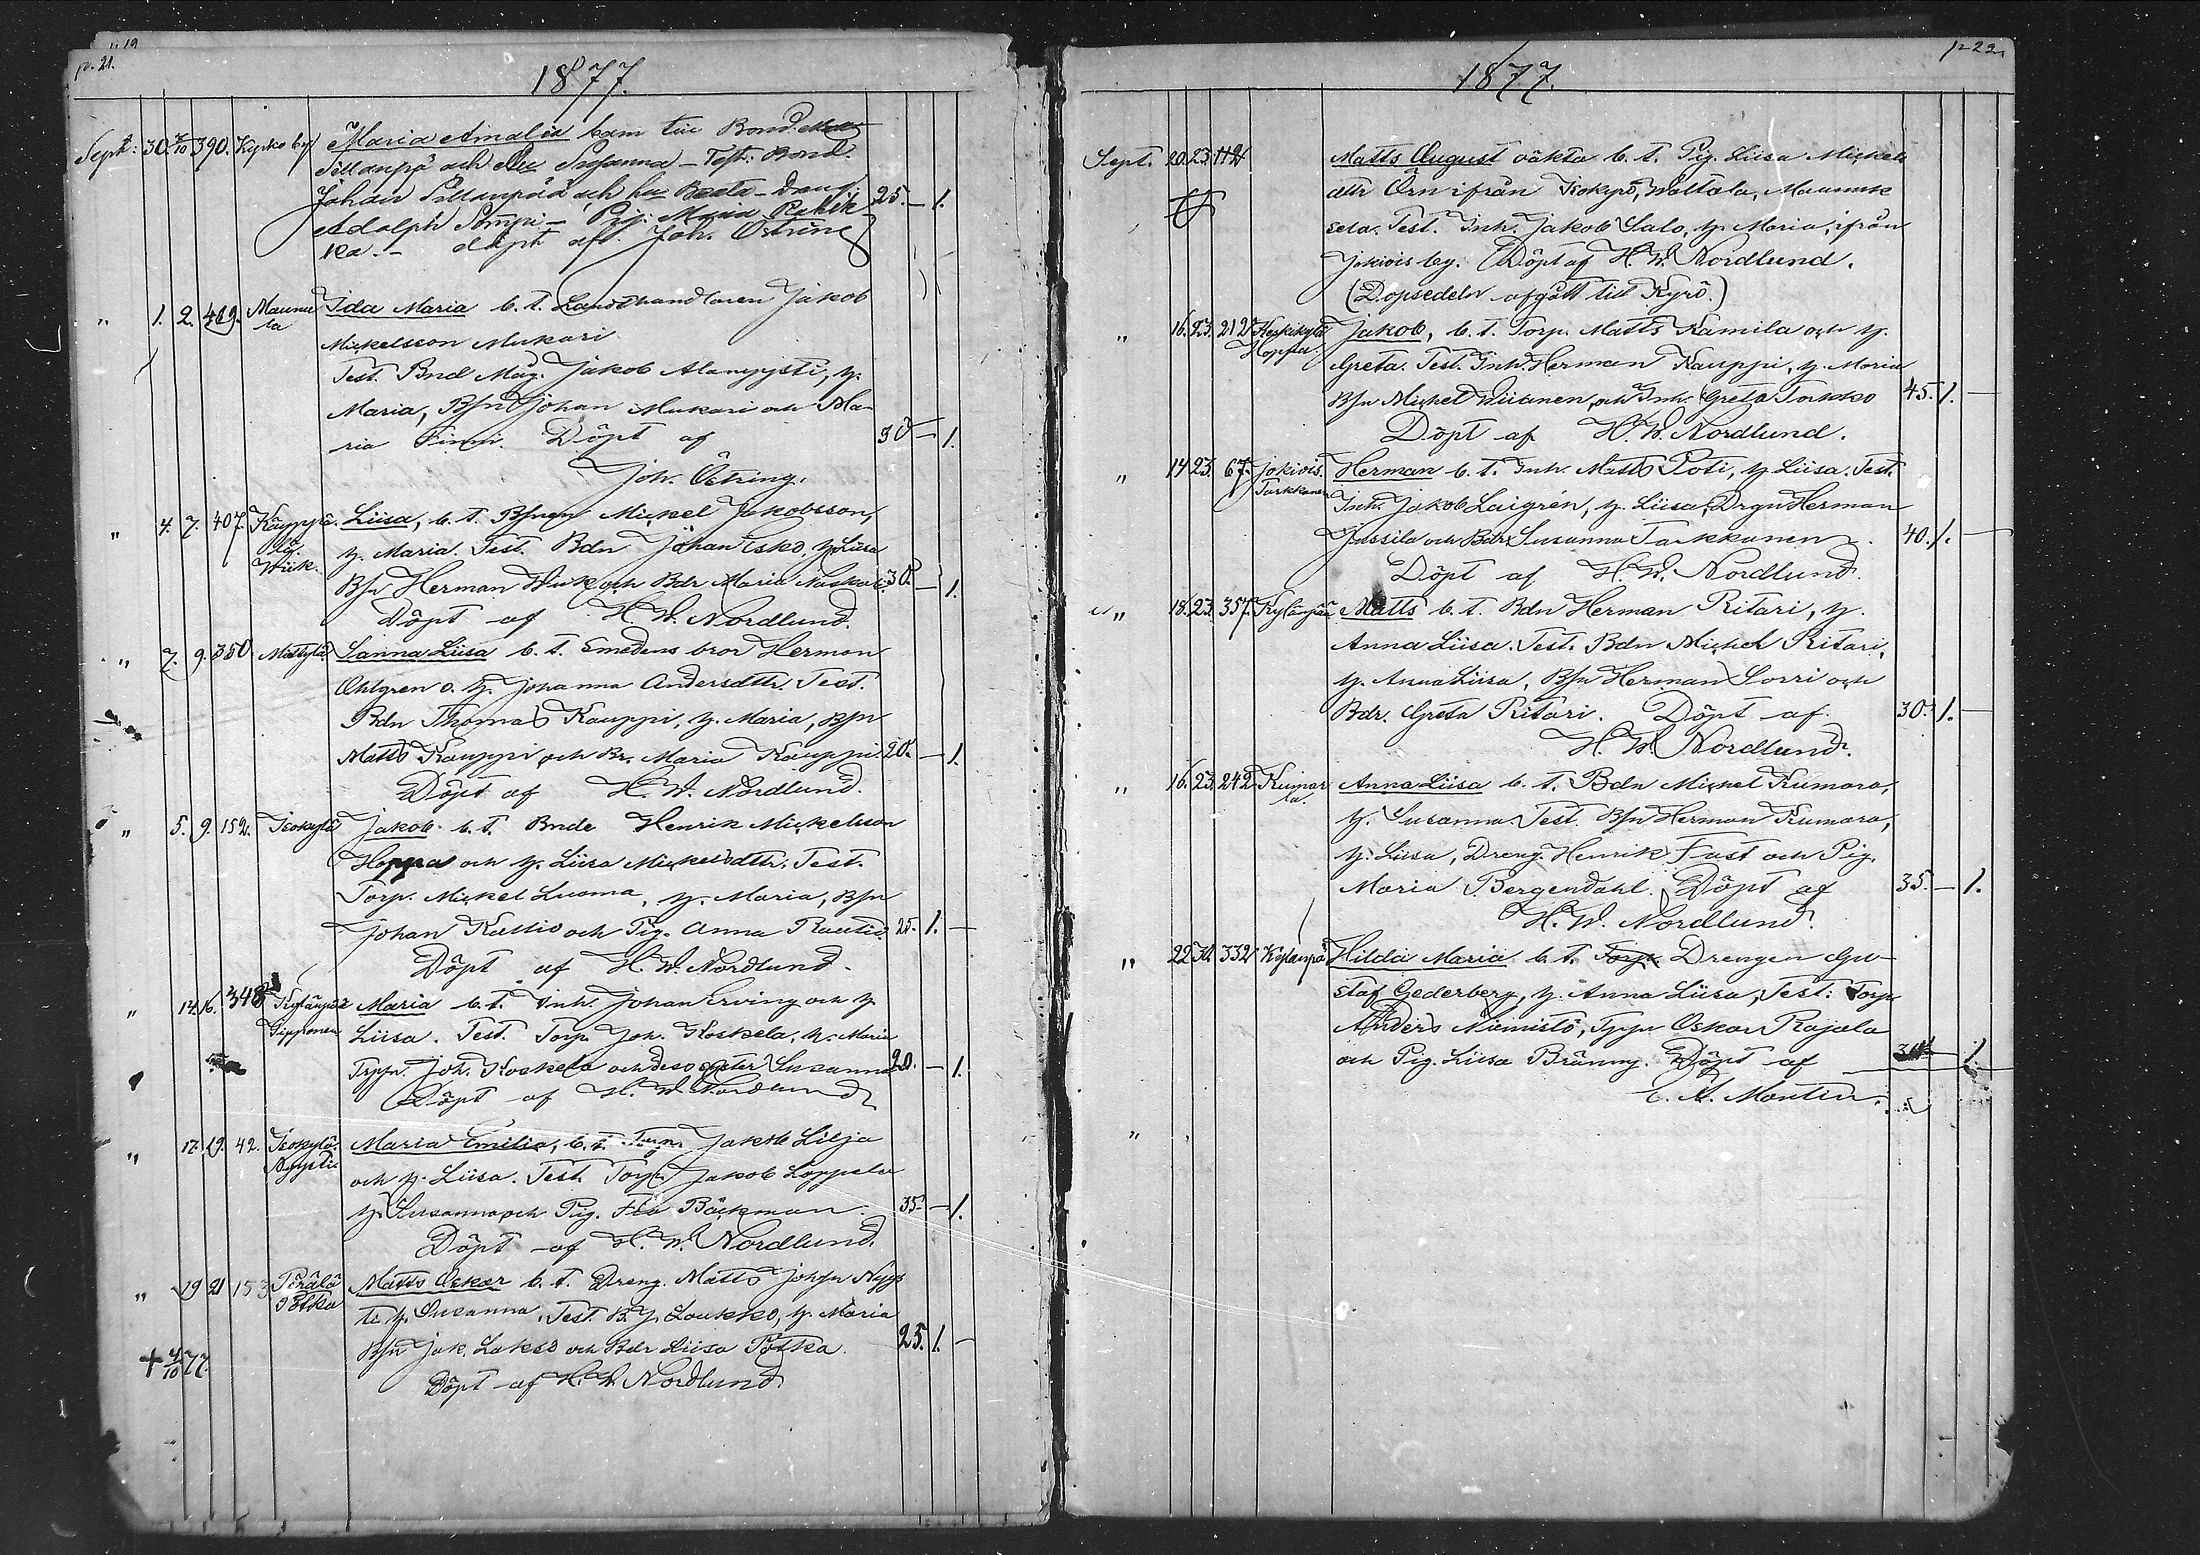 p. 21.
1877.
Sept: 30. 2/10 390. Kipko by Maria Amalia barn till Bond.
Sillanpä och Susanna - Test: Bond.
Johan Sillanpää och hu Beata - Dräng 25. — 1.
Adolph Pig: Maria
ka. — döpt af. Joh. Östring
" 1. 2. 469. Maunula Ida Maria b. t. Landthandlaren Jakob
Mickelsson Mukari
Test. Bnd Mag. Jakob Alanpysti, h.
Maria, Bsn Johan Mukari och Ma-
ria Finni. Döpt af 30 — 1.
Joh. Östring.
" 4. 7. 407. Kauppi Liisa, b. t. Bsnen Mickel Jakobsson,
Wiik. h. Maria. Test. Bdn Johan Isko, h. Liisa
Bsn Herman Wiik och Bdr Maria 30. — 1.
Döpt af H. W. Nordlund.
" 7. 9. 350 Mattylä Sanna Liisa b. t. Smedens bror Herman
Öhlgren o. h. Johanna Andersdttr. Test.
Bdn Thomas Kauppi, h. Maria, Bsn
Matts Kauppi och Br. Maria Kauppi. 20. — 1.
Döpt af H. W. Nordlund.
" 5. 9. 152. Isokylä Jakob b. t. Bnde Henrik Mickelsson
Hoppa och h. Liisa Mickelsdttr. Test.
Torp. Mickel Luoma, h. Maria, Bsn
Johan Kastio och Pig. Anna Rautio. 25. 1. —
Döpt af H. W. Nordlund.
" 14. 16. 348 Kylänpää Maria b. t. Inh. Johan Erving och h
Gipponen Liisa. Test. Torp. Joh. Koskela, h. Maria
Trpn. Joh. Koskela och dess syster Susanna 20. — 1.
Döpt af H. W. Nordlund
" 17. 19. 42. Isokylä Maria Emilia, b. t. Torp. Jakob Lilja
Nyysti och h. Liisa. Test. Torp. Jakob Loppela
h. Susanna och Pig. Fia Bäckman. 35 — 1.
Döpt af H. W. Nordlund.
" 19 21 153 Perälä Matts Oskar b. t. Dreng. Matts Johsn Nyys
Potka ti h. Susanna. Test. B. J. Loukko, h. Maria
Bsn Jak. Lakso och Bdr Liisa Potka. 25. 1. —
+ 4/10 77. Döpt af H. W. Nordlund.
p 22.
1877.
Sept. 20. 23. Matts August oäkta b. t. Pig. Liisa Mickels
dttr Örn ifrån Isokyrö, Waltala, Maunuk
sela. Test. Inh. Jakob Salo, h. Maria, ifrån
Jokiois by. Döpt af H. W. Nordlund.
(Dopsedeln afgått till Kyrö.)
" 16. 23. 212 Keskikylä Jakob, b. t. Torp. Matts Kamila och h.
Hoppa. Greta. Test. Inh. Herman Kauppi, h. Maria
Bsn Mickel Wiitanen, och Inh. Greta Torkko 45. 1. —
Döpt af H. W. Nordlund.
" 14 23. 67. Jokiois. Herman b. t. Inh. Matts Poti, h. Liisa. Test.
Tarkkanen Inh. Jakob Laigrén, h. Liisa, Drgn Herman
Jussila och Bdr Susanna Tarkkanen. 40. 1. —
Döpt af H. W. Nordlund.
" 18. 23. 357. Kylänpää Matts b. t. Bdn Herman Ritari, h.
Anna Liisa. Test. Bdn Mickel Ritari,
h. Anna Liisa, Bsn Herman Sorri och
Bdr. Greta Ritari. Döpt af 30. 1. —
H. W. Nordlund.
" 16. 23. 242 Kuimar Anna Liisa b. t. Bdn Mickel Kumara,
la. h. Susanna. Test. Bsn Herman Kumara,
h. Liisa, Dreng. Henrik Fast och Pig.
Maria Bergendahl. Döpt af 35. — 1.
H. W. Nordlund.
" 22 30. 332 Kylänpä Hilda Maria b. t. Torp. Drengen Gu-
staf Cederberg, h. Anna Liisa, Test: Torp.
Anders Niemistö, Trpn Oskar Rajala
och Pig. Liisa Bränny. Döpt af 30 1.
C. A. Montin.
"